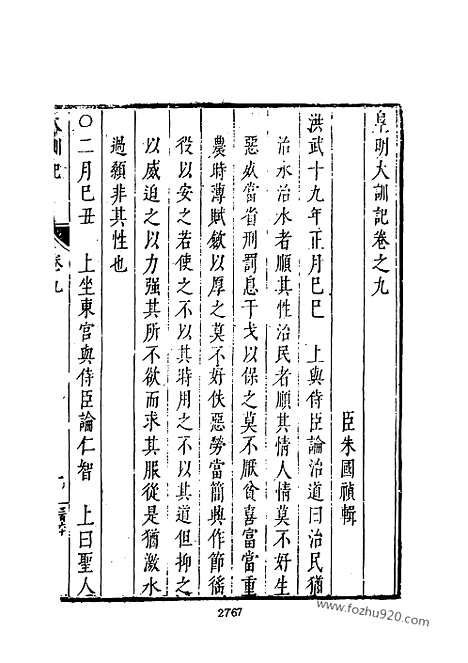 皇明大訓記卷之九
臣朱國禎輯
洪武十九年正月己巳　上與侍臣論治道曰治民猶
治水治水者順其性治民者順其情人情莫不好生
惡死當省刑罰息干戈以保之莫不厭貧喜富當重
農時薄賦斂以厚之莫不好佚惡勞當簡興作節徭
役以安之若使之不以其時用之不以其道但抑之
以威迫之以力強其所不欲而求其服從是猶激水
過顙非其性也
○二月己丑　上坐東宮與侍臣論仁智　上曰聖人
大訓記
卷九
2767
www.fozhu920.com